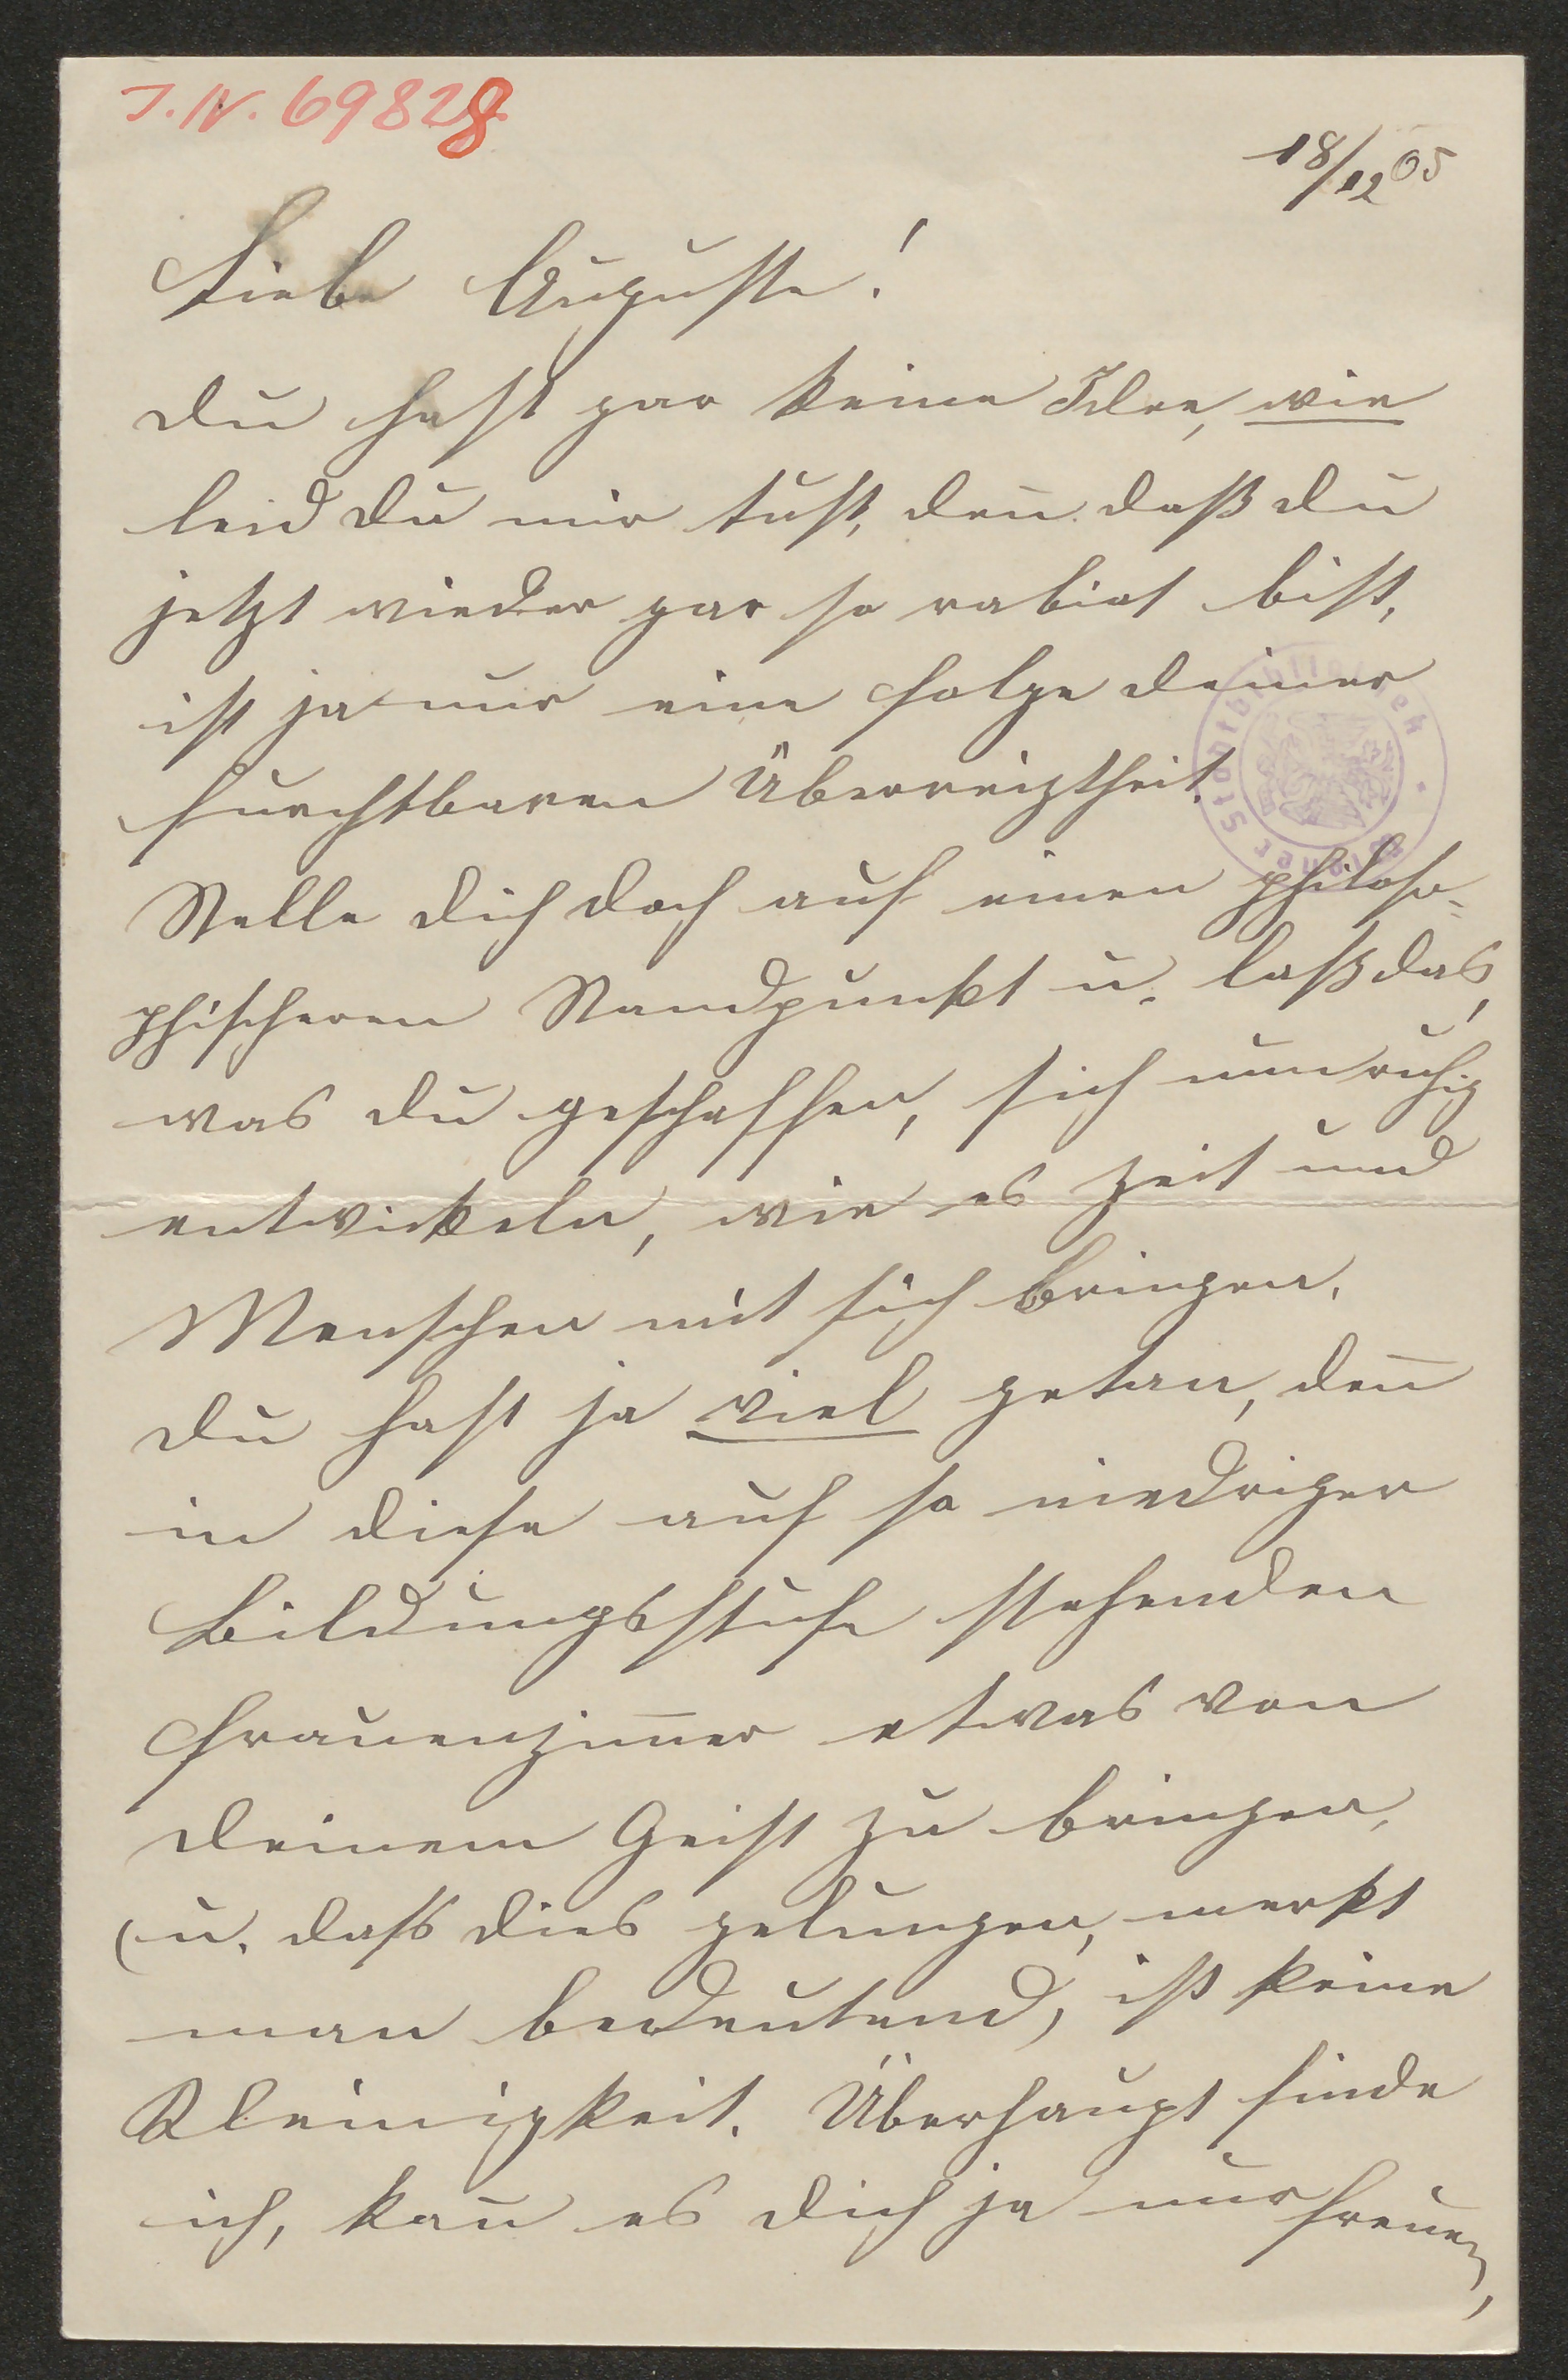 I.N. 69828
18/12 05
Liebe Auguste!
Du hast gar keine Idee, wie
leid du mir tust, den̄ daß du
jetzt wieder gar so rabiat bist,
ist ja nur eine Folge deiner
furchtbaren Überreiztheit.
Stelle dich doch auf einen philoso-
phischeren Standpunkt u. laß das,
was du geschaffen, sich nun ruhig
entwickeln, wie es Zeit und
Menschen mit sich bringen.
Du hast ja viel getan, den̄
in diese auf so niedriger
Bildungsstufe stehenden
Frauenzim̄er etwas von
deinem Geist zu bringen,
(u. dass dies gelungen, merkt
man bedeutend, ist keine
Kleinigkeit. Überhaupt finde
ich, kan̄ es dich ja nur freuen,
Wiener Stadtbibliothek